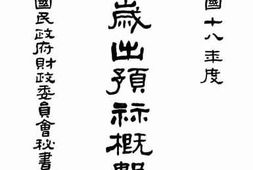 國十八年度
歲出預祘概
國民政府財政委員會秘書